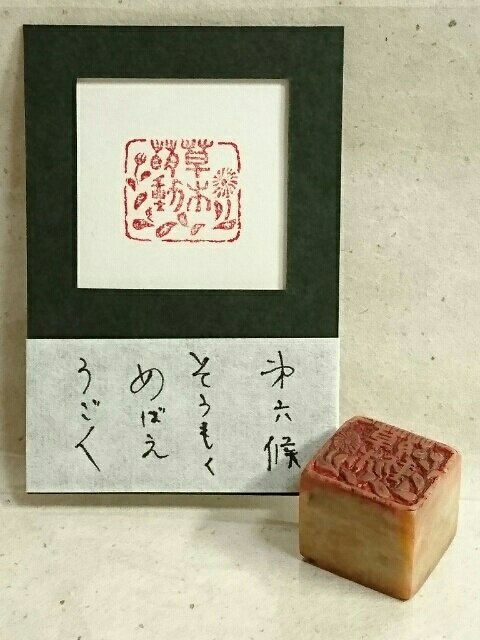 草木
萌動
㐧六候
そうもく
めばえ
うごく